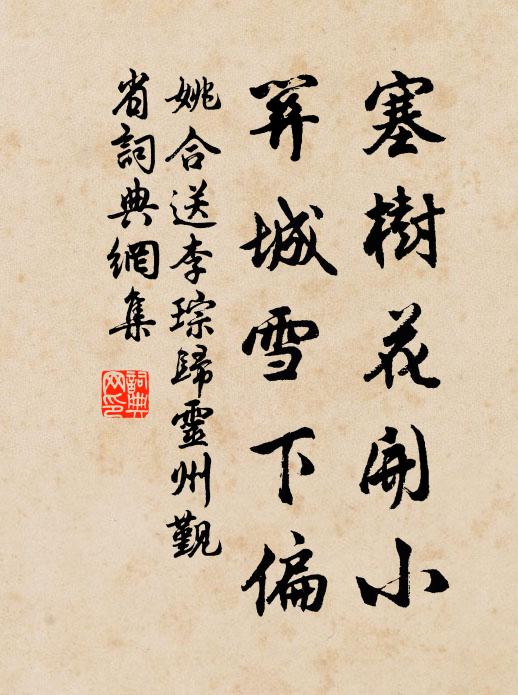 塞樹花開小
關城雪下偏
姚合送李琮歸靈州覲
省詞典網集
詞典
網印